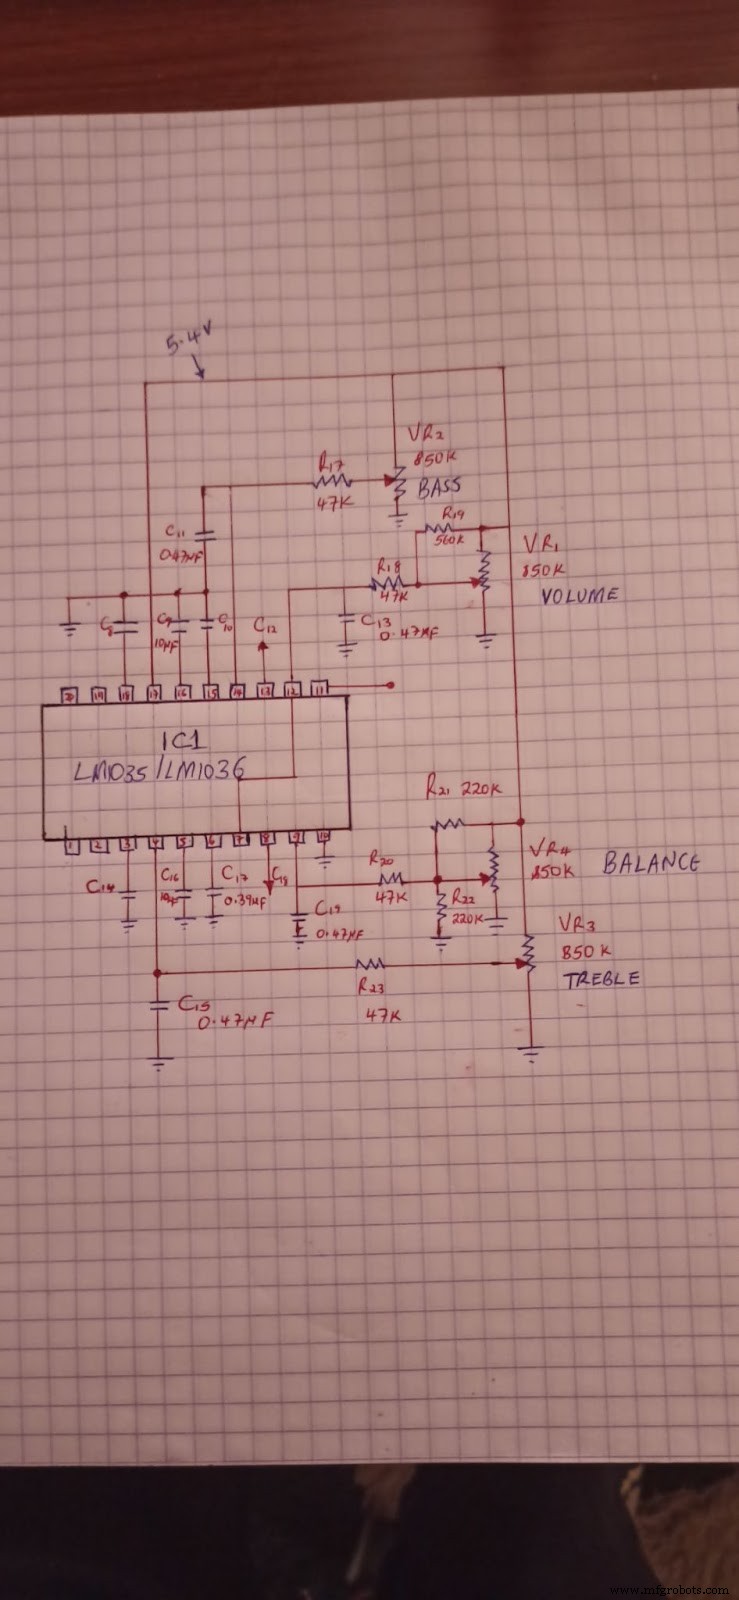 5.4V
VR2
850K
BASS
R17
47K
R19
560K
C11
0.47µF
VR1
850K
VOLUME
R18
47K
C13
0.47µF
C8
C9
10µF
C10
C12
20 19 18 17 16 15 14 13 12 11
IC1
LM1035/LM1036
1 2 3 4 5 6 7 8 9 10
R21 220K
VR4
850K
BALANCE
R20
47K
R22
220K
C14
C16
C17
0.39µF
C18
C19
0.47µF
VR3
850K
TREBLE
R23
47K
C15
0.47µF
www.mfgrobots.com